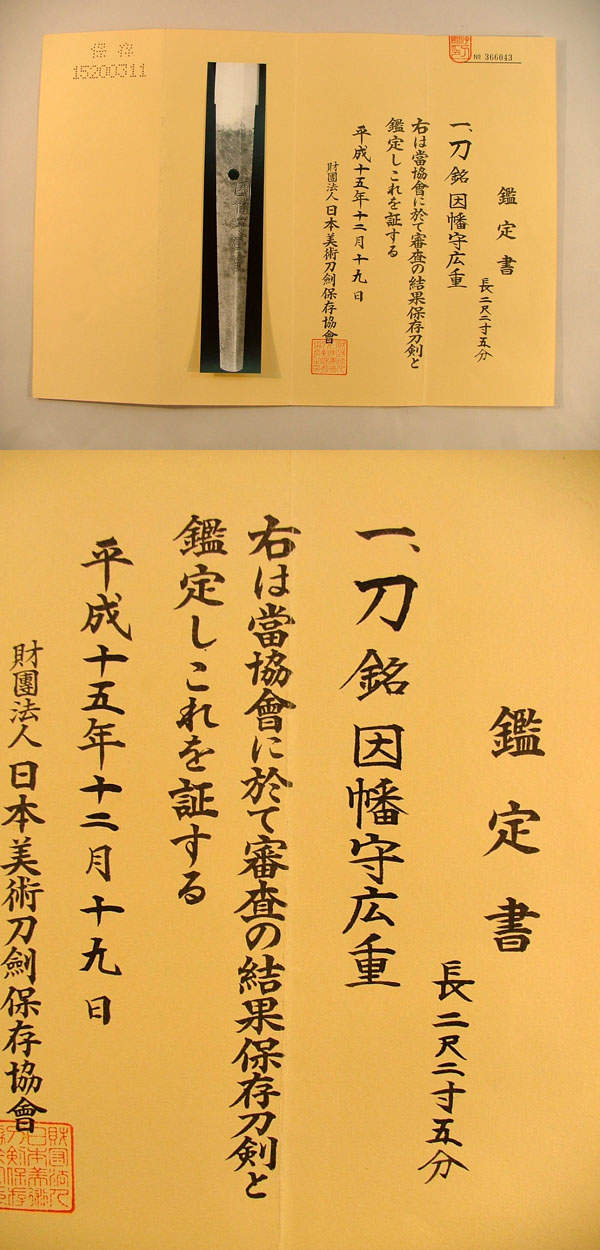 № 366043
鑑定書
長二尺二寸五分
一、刀 銘 因幡守広重
右は當協會に於て審査の結果保存刀剣と
鑑定しこれを証する
平成十五年十二月十九日
財團法人日本美術刀劍保存協會
保存
15200311
鑑定書
長二尺二寸五分
一、刀 銘 因幡守広重
右は當協會に於て審査の結果保存刀剣と
鑑定しこれを証する
平成十五年十二月十九日
財團法人日本美術刀劍保存協會